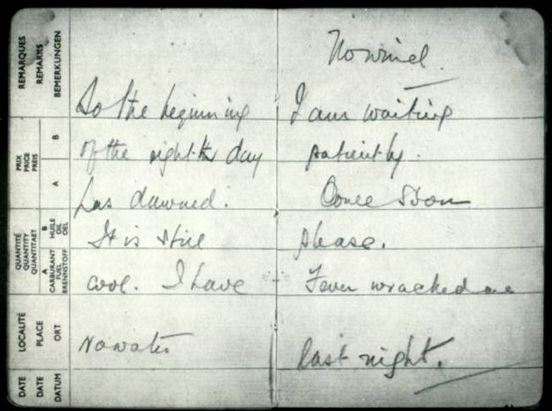 REMARQUES
REMARKS
BEMERKUNGEN
PRIX
PRICE
PREIS
B
A
QUANTITÉ
QUANTITY
QUANTITAET
B
HUILE
OIL
OEL
A
CARBURANT
FUEL
BRENNSTOFF
LOCALITÉ
PLACE
ORT
DATE
DATE
DATUM
So the beginning
of the eighth day
has dawned.
It is still
cool. I have
No water
No wind.
I am waiting
patiently.
Come soon
please.
Fever wracked me
last night.